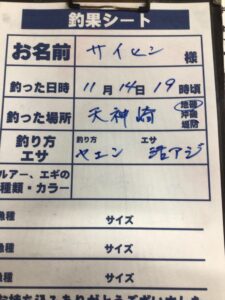 釣果シート
お名前 サイセン 様
釣った日時 11月14日19時頃
釣った場所 天神崎 地磯 沖磯 堤防
釣り方 エサ 釣り方 ヤエン エサ 活アジ
ルアー、エギの種類・カラー
魚種 サイズ
魚種 サイズ
魚種 サイズ